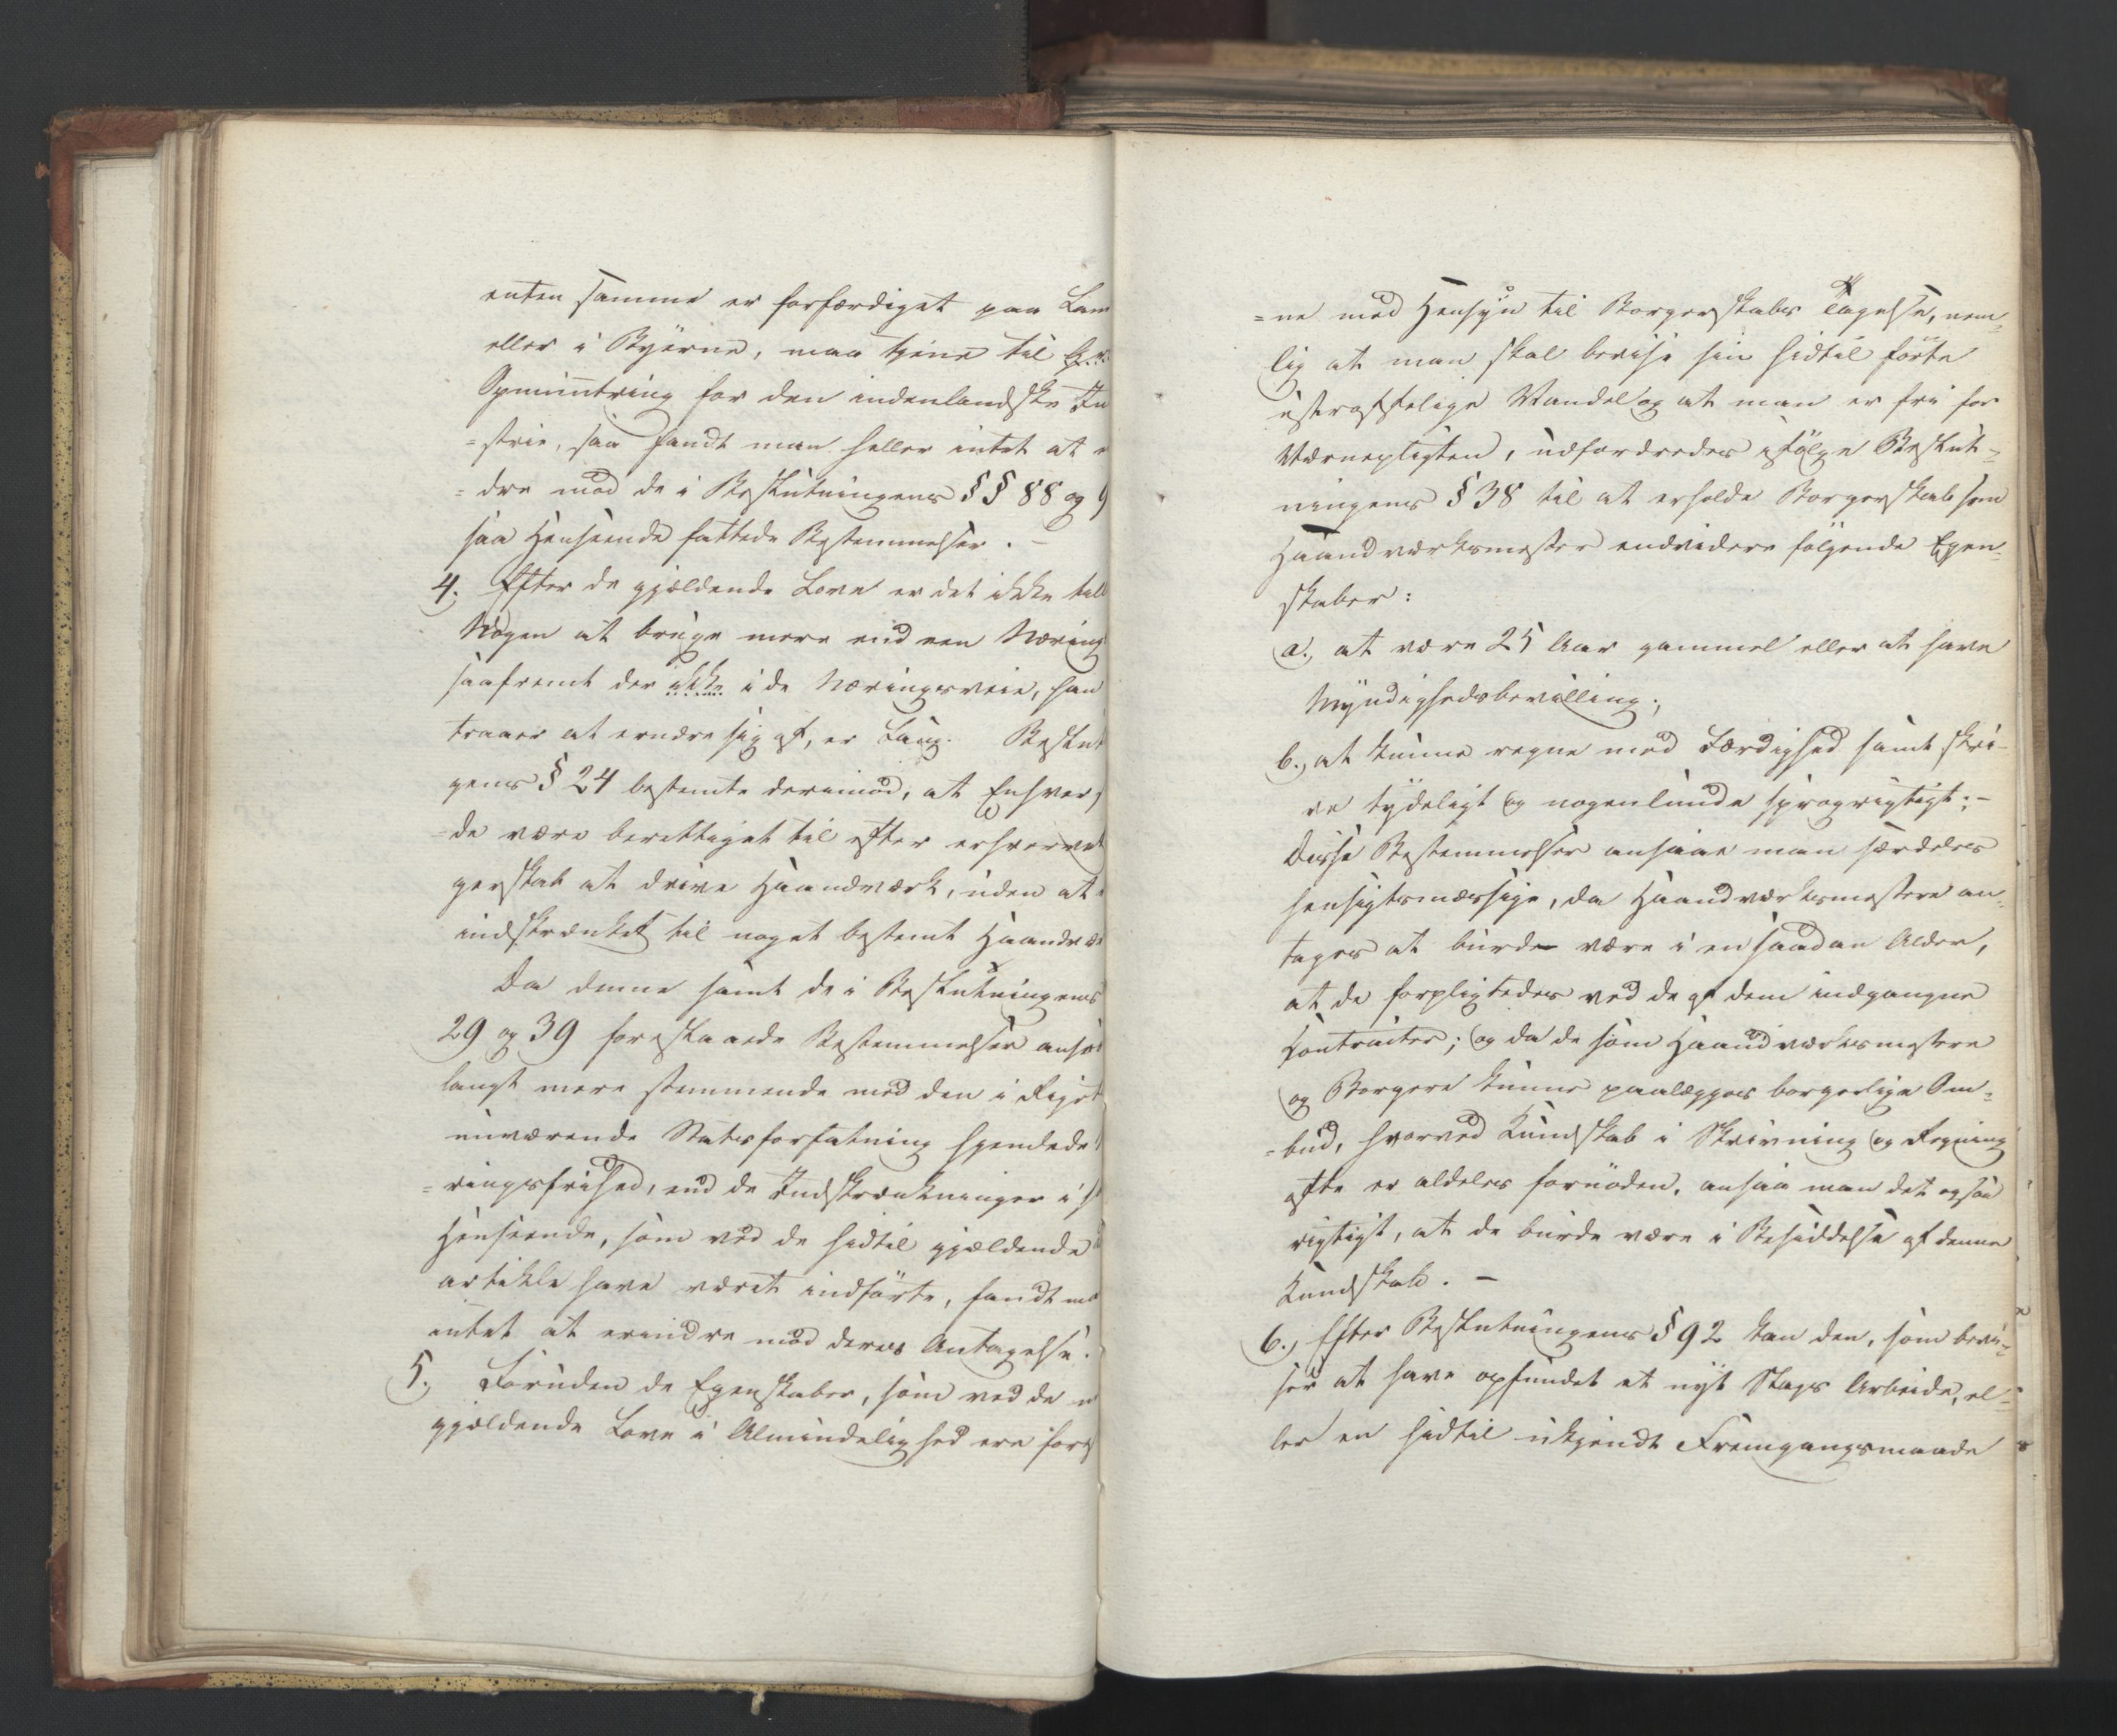 enten samme er forfærdiget paa Lan
eller i Byerne, maa tjene til
Opmuntring for den indenlandske In
=strie, saa fandt man heller intet at e
=dre mod de i Beslutningens §§ 88 og 9
saa Henseende fattede Bestemmelser. –
4. Efter de gjældende Love er det ikke till
Nogen at bruge mere end een Næring
saafremt der ikke i de Næringsveie, han
traaer at ernære sig af, er Laug. Beslut
gens § 24 bestemte derimod, at Enhver,
=de være berettiget til efter erhvervet
gerskab at drive Haandværk, uden at
indskrænket til noget bestemt Haandvæ
Da denne samt de i Beslutningens
29 og 39 foreslaaede Bestemmelser ansaa
langt mere stemmende med den i Riget
nuværende Statsforfatning hjemlede
=ringsfrihed, end de Indskrænkninger i s
Henseende, som ved de hidtil gjældende
artikle have været indførte, fandt ma
intet at erindre mod deres Antagelse.
5. Foruden de Egenskaber, som ved de n
gjældende Love i Almindelighed ere fore
=ne med Hensyn til Borgerskabs Tagelse, nem=
lig at man skal bevise sin hidtil førte
ustraffelige Vandel og at man er fri for
Værnepligten, udfordredes ifølge Beslut=
ningens § 38 til at erholde Borgerskab som
Haandværksmester endvidere følgende Egen=
skaber:
a., at være 25 Aar gammel eller at have
Myndighedsbevilling;
b., at kunne regne med Færdighed samt skri-
ve tydeligt og nogenlunde sprogrigtigt; –
Disse Bestemmelser ansaae man særdeles
hensigtsmæssige, da Haandværksmestere an=
tages at burde være i en saadan Alder,
at de forpligtedes ved de af dem indgangne
Contracter; og da de som Haandværksmestere
og Borgere kunne paalægges borgerlige Om=
=bud, hvorved Kundskab i Skrivning og Regning
ofte er aldeles fornøden, ansaa man det ogsaa
rigtigt, at de burde være i Besiddelse af denne
Kundskab. –
6., Efter Beslutningens § 92 kan den, som bevi=
ser at have opfundet et nyt Slags Arbeide, el=
ler en hidtil ukjendt Fremgangsmaade